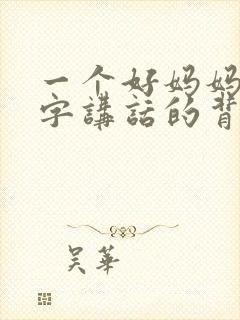 一个好妈妈
字講話的背
吴華